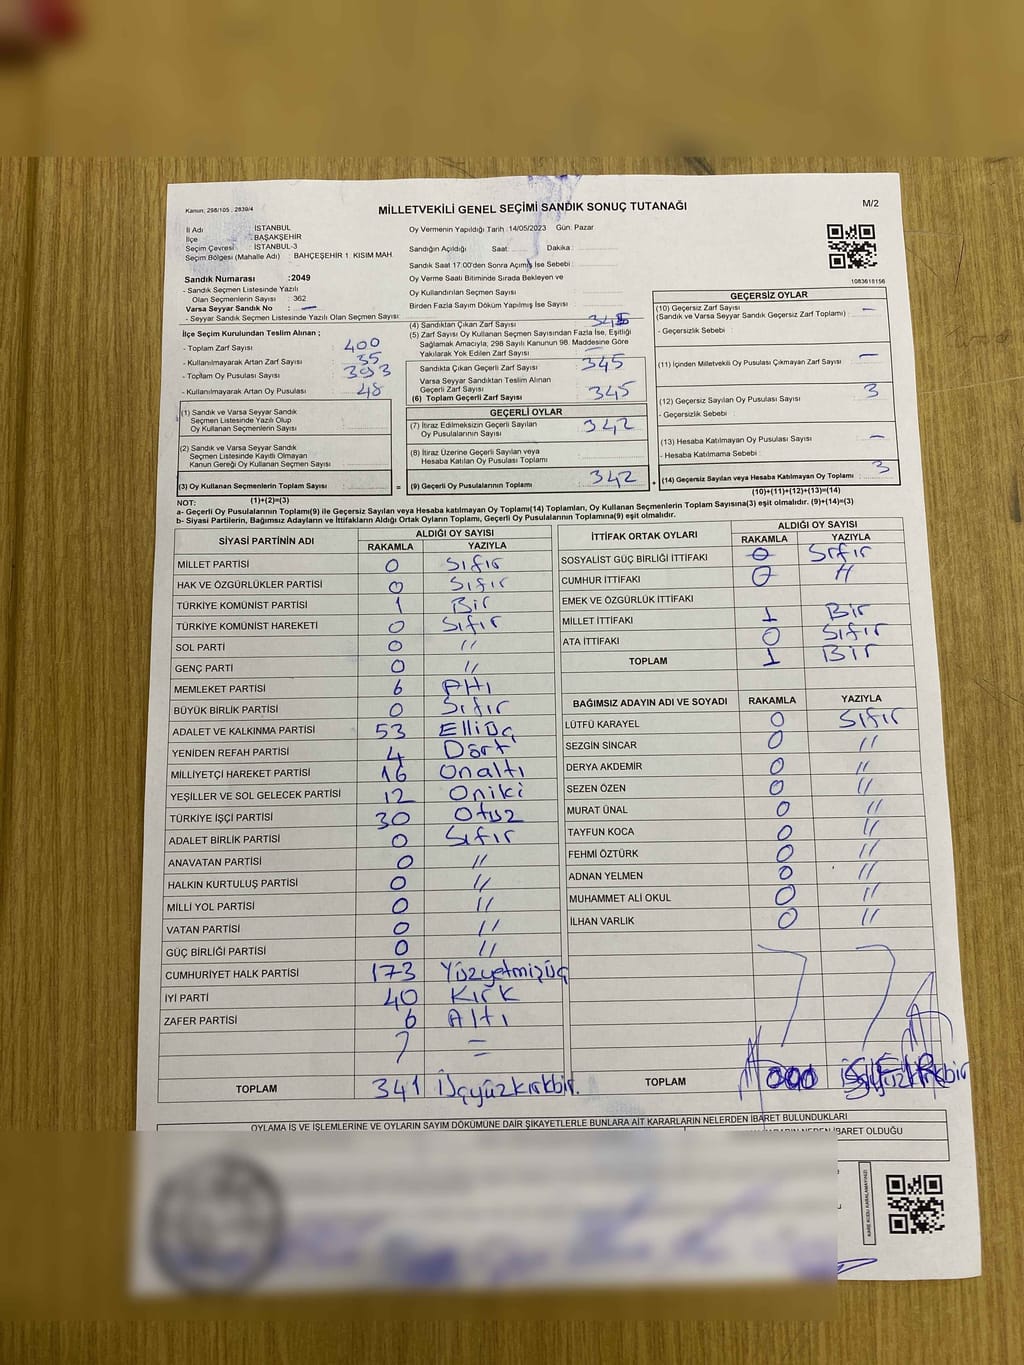 Kanun, 298/105 , 2839/4
MİLLETVEKİLİ GENEL SEÇİMİ SANDIK SONUÇ TUTANAĞI
M/2
İl Adı : İSTANBUL
İlçe : BAŞAKŞEHİR
Seçim Çevresi : İSTANBUL-3
Seçim Bölgesi (Mahalle Adı) : BAHÇEŞEHİR 1. KISIM MAH.
Sandık Numarası :2049
- Sandık Seçmen Listesinde Yazılı
Olan Seçmenlerin Sayısı : 362
Varsa Seyyar Sandık No : —
- Seyyar Sandık Seçmen Listesinde Yazılı Olan Seçmen Sayısı:
Oy Vermenin Yapıldığı Tarih :14/05/2023 Gün: Pazar
Sandığın Açıldığı Saat: Dakika:
Sandık Saat 17.00'den Sonra Açılmış İse Sebebi :
Oy Verme Saati Bitiminde Sırada Bekleyen ve
Oy Kullandırılan Seçmen Sayısı :
Birden Fazla Sayım Döküm Yapılmış İse Sayısı :
1083618156
İlçe Seçim Kurulundan Teslim Alınan ;
- Toplam Zarf Sayısı : 400
- Kullanılmayarak Artan Zarf Sayısı : 35
- Toplam Oy Pusulası Sayısı : 393
- Kullanılmayarak Artan Oy Pusulası : 48
(1) Sandık ve Varsa Seyyar Sandık
Seçmen Listesinde Yazılı Olup
Oy Kullanan Seçmenlerin Sayısı :
(2) Sandık ve Varsa Seyyar Sandık
Seçmen Listesinde Kayıtlı Olmayan
Kanun Gereği Oy Kullanan Seçmen Sayısı :
(3) Oy Kullanan Seçmenlerin Toplam Sayısı :
(1)+(2)=(3)
(4) Sandıktan Çıkan Zarf Sayısı : 345
(5) Zarf Sayısı Oy Kullanan Seçmen Sayısından Fazla İse, Eşitliği
Sağlamak Amacıyla; 298 Sayılı Kanunun 98. Maddesine Göre
Yakılarak Yok Edilen Zarf Sayısı :
Sandıkta Çıkan Geçerli Zarf Sayısı : 345
Varsa Seyyar Sandıktan Teslim Alınan
Geçerli Zarf Sayısı :
(6) Toplam Geçerli Zarf Sayısı : 345
GEÇERLİ OYLAR
(7) İtiraz Edilmeksizin Geçerli Sayılan
Oy Pusulalarının Sayısı : 342
(8) İtiraz Üzerine Geçerli Sayılan veya
Hesaba Katılan Oy Pusulası Toplamı :
= (9) Geçerli Oy Pusulalarının Toplamı : 342 +
GEÇERSİZ OYLAR
(10) Geçersiz Zarf Sayısı :
(Sandık ve Varsa Seyyar Sandık Geçersiz Zarf Toplamı) —
- Geçersizlik Sebebi :
(11) İçinden Milletvekili Oy Pusulası Çıkmayan Zarf Sayısı : —
(12) Geçersiz Sayılan Oy Pusulası Sayısı : 3
- Geçersizlik Sebebi :
(13) Hesaba Katılmayan Oy Pusulası Sayısı : —
- Hesaba Katılmama Sebebi :
(14) Geçersiz Sayılan veya Hesaba Katılmayan Oy Toplamı : 3
(10)+(11)+(12)+(13)=(14)
NOT:
a- Geçerli Oy Pusulaları Toplamı(9) ile Geçersiz Sayılan veya Hesaba Katılmayan Oy Toplamı(14) Toplamları, Oy Kullanan Seçmenlerin Toplam Sayısına(3) eşit olmalıdır. (9)+(14)=(3)
b- Siyasi Partilerin, Bağımsız Adayların ve İttifakların Aldığı Ortak Oyların Toplamı, Geçerli Oy Pusulalarının Toplamına(9) eşit olmalıdır.
SİYASİ PARTİNİN ADI ALDIĞI OY SAYISI
RAKAMLA YAZIYLA
MİLLET PARTİSİ 0 Sıfır
HAK VE ÖZGÜRLÜKLER PARTİSİ 0 Sıfır
TÜRKİYE KOMÜNİST PARTİSİ 1 Bir
TÜRKİYE KOMÜNİST HAREKETİ 0 Sıfır
SOL PARTİ 0 "
GENÇ PARTİ 0 "
MEMLEKET PARTİSİ 6 Altı
BÜYÜK BİRLİK PARTİSİ 0 Sıfır
ADALET VE KALKINMA PARTİSİ 53 Elliüç
YENİDEN REFAH PARTİSİ 4 Dört
MİLLİYETÇİ HAREKET PARTİSİ 16 Onaltı
YEŞİLLER VE SOL GELECEK PARTİSİ 12 Oniki
TÜRKİYE İŞÇİ PARTİSİ 30 Otuz
ADALET BİRLİK PARTİSİ 0 Sıfır
ANAVATAN PARTİSİ 0 "
HALKIN KURTULUŞ PARTİSİ 0 "
MİLLİ YOL PARTİSİ 0 "
VATAN PARTİSİ 0 "
GÜÇ BİRLİĞİ PARTİSİ 0 "
CUMHURİYET HALK PARTİSİ 173 Yüzyetmişüç
İYİ PARTİ 40 Kırk
ZAFER PARTİSİ 6 Altı
TOPLAM 341 Üçyüzkırkbir.
İTTİFAK ORTAK OYLARI ALDIĞI OY SAYISI
RAKAMLA YAZIYLA
SOSYALİST GÜÇ BİRLİĞİ İTTİFAKI 0 Sıfır
CUMHUR İTTİFAKI 0 "
EMEK VE ÖZGÜRLÜK İTTİFAKI
MİLLET İTTİFAKI 1 Bir
ATA İTTİFAKI 0 Sıfır
TOPLAM 1 Bir
BAĞIMSIZ ADAYIN ADI VE SOYADI RAKAMLA YAZIYLA
LÜTFÜ KARAYEL 0 Sıfır
SEZGİN SİNCAR 0 "
DERYA AKDEMİR 0 "
SEZEN ÖZEN 0 "
MURAT ÜNAL 0 "
TAYFUN KOCA 0 "
FEHMİ ÖZTÜRK 0 "
ADNAN YELMEN 0 "
MUHAMMET ALİ OKUL 0 "
İLHAN VARLIK 0 "
TOPLAM 000
OYLAMA İŞ VE İŞLEMLERİNE VE OYLARIN SAYIM DÖKÜMÜNE DAİR ŞİKAYETLERLE BUNLARA AİT KARARLARIN NELERDEN İBARET BULUNDUKLARI
İBARET OLDUĞU